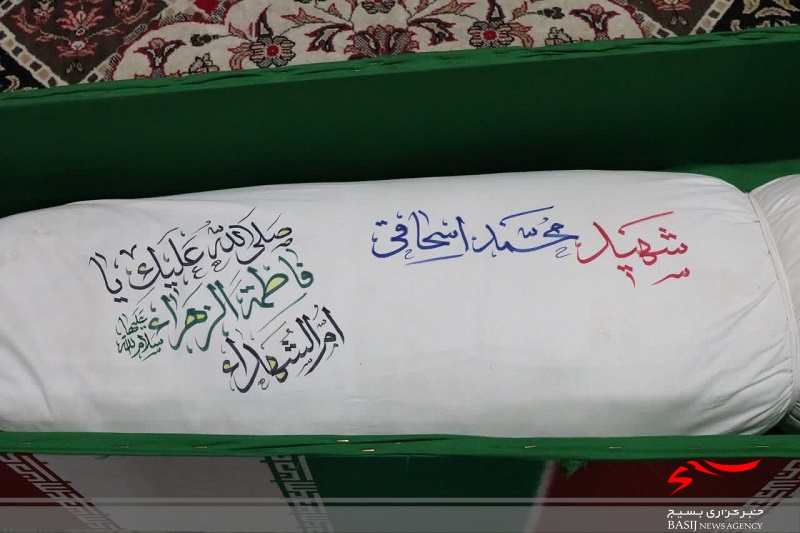 شهید محمد اسحاقی
صلی الله علیک یا
فاطمة الزهراء
سلام الله علیها
ام الشهداء
بسیج
خبرگزاری بسیج
BASIJ NEWS AGENCY